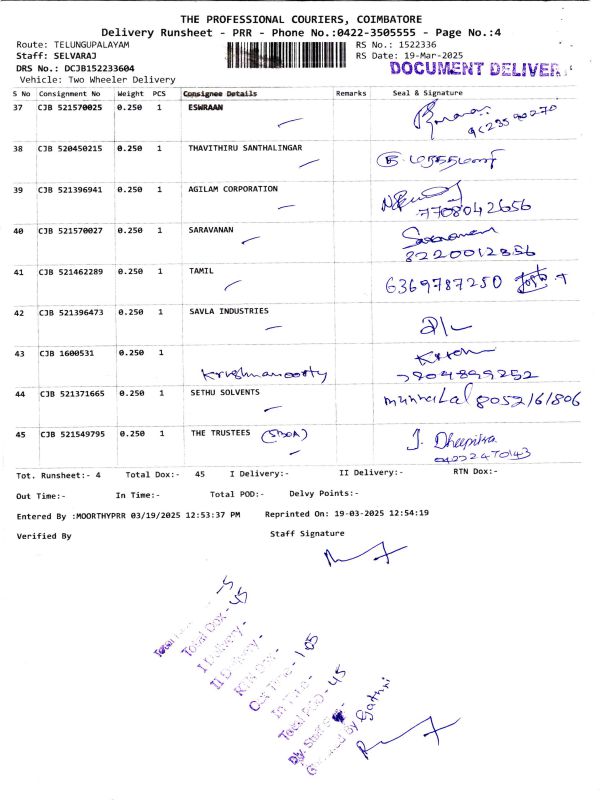 THE PROFESSIONAL COURIERS, COIMBATORE
Delivery Runsheet - PRR - Phone No.:0422-3505555 - Page No.:4
Route: TELUNGUPALAYAM RS No.: 1522336
Staff: SELVARAJ RS Date: 19-Mar-2025
DRS No.: DCJB152233604 DOCUMENT DELIVER
Vehicle: Two Wheeler Delivery
S No Consignment No Weight PCS Consignee Details Remarks Seal & Signature
37 CJB 521570025 0.250 1 ESWRAAN
38 CJB 520450215 0.250 1 THAVITHIRU SANTHALINGAR
39 CJB 521396941 0.250 1 AGILAM CORPORATION
7708042656
40 CJB 521570027 0.250 1 SARAVANAN Saravanan
8220012856
41 CJB 521462289 0.250 1 TAMIL 6369787250
42 CJB 521396473 0.250 1 SAVLA INDUSTRIES
43 CJB 1600531 0.250 1
Krishnamoorty
44 CJB 521371665 0.250 1 SETHU SOLVENTS
45 CJB 521549795 0.250 1 THE TRUSTEES J. Dheepika
Tot. Runsheet:- 4 Total Dox:- 45 I Delivery:- II Delivery:- RTN Dox:-
Out Time:- In Time:- Total POD:- Delvy Points:-
Entered By :MOORTHYPRR 03/19/2025 12:53:37 PM Reprinted On: 19-03-2025 12:54:19
Verified By Staff Signature
Total Dox - 45
I Delivery -
II Delivery -
RTN Dox -
Out Time - 1.05
In Time -
Total POD - 45